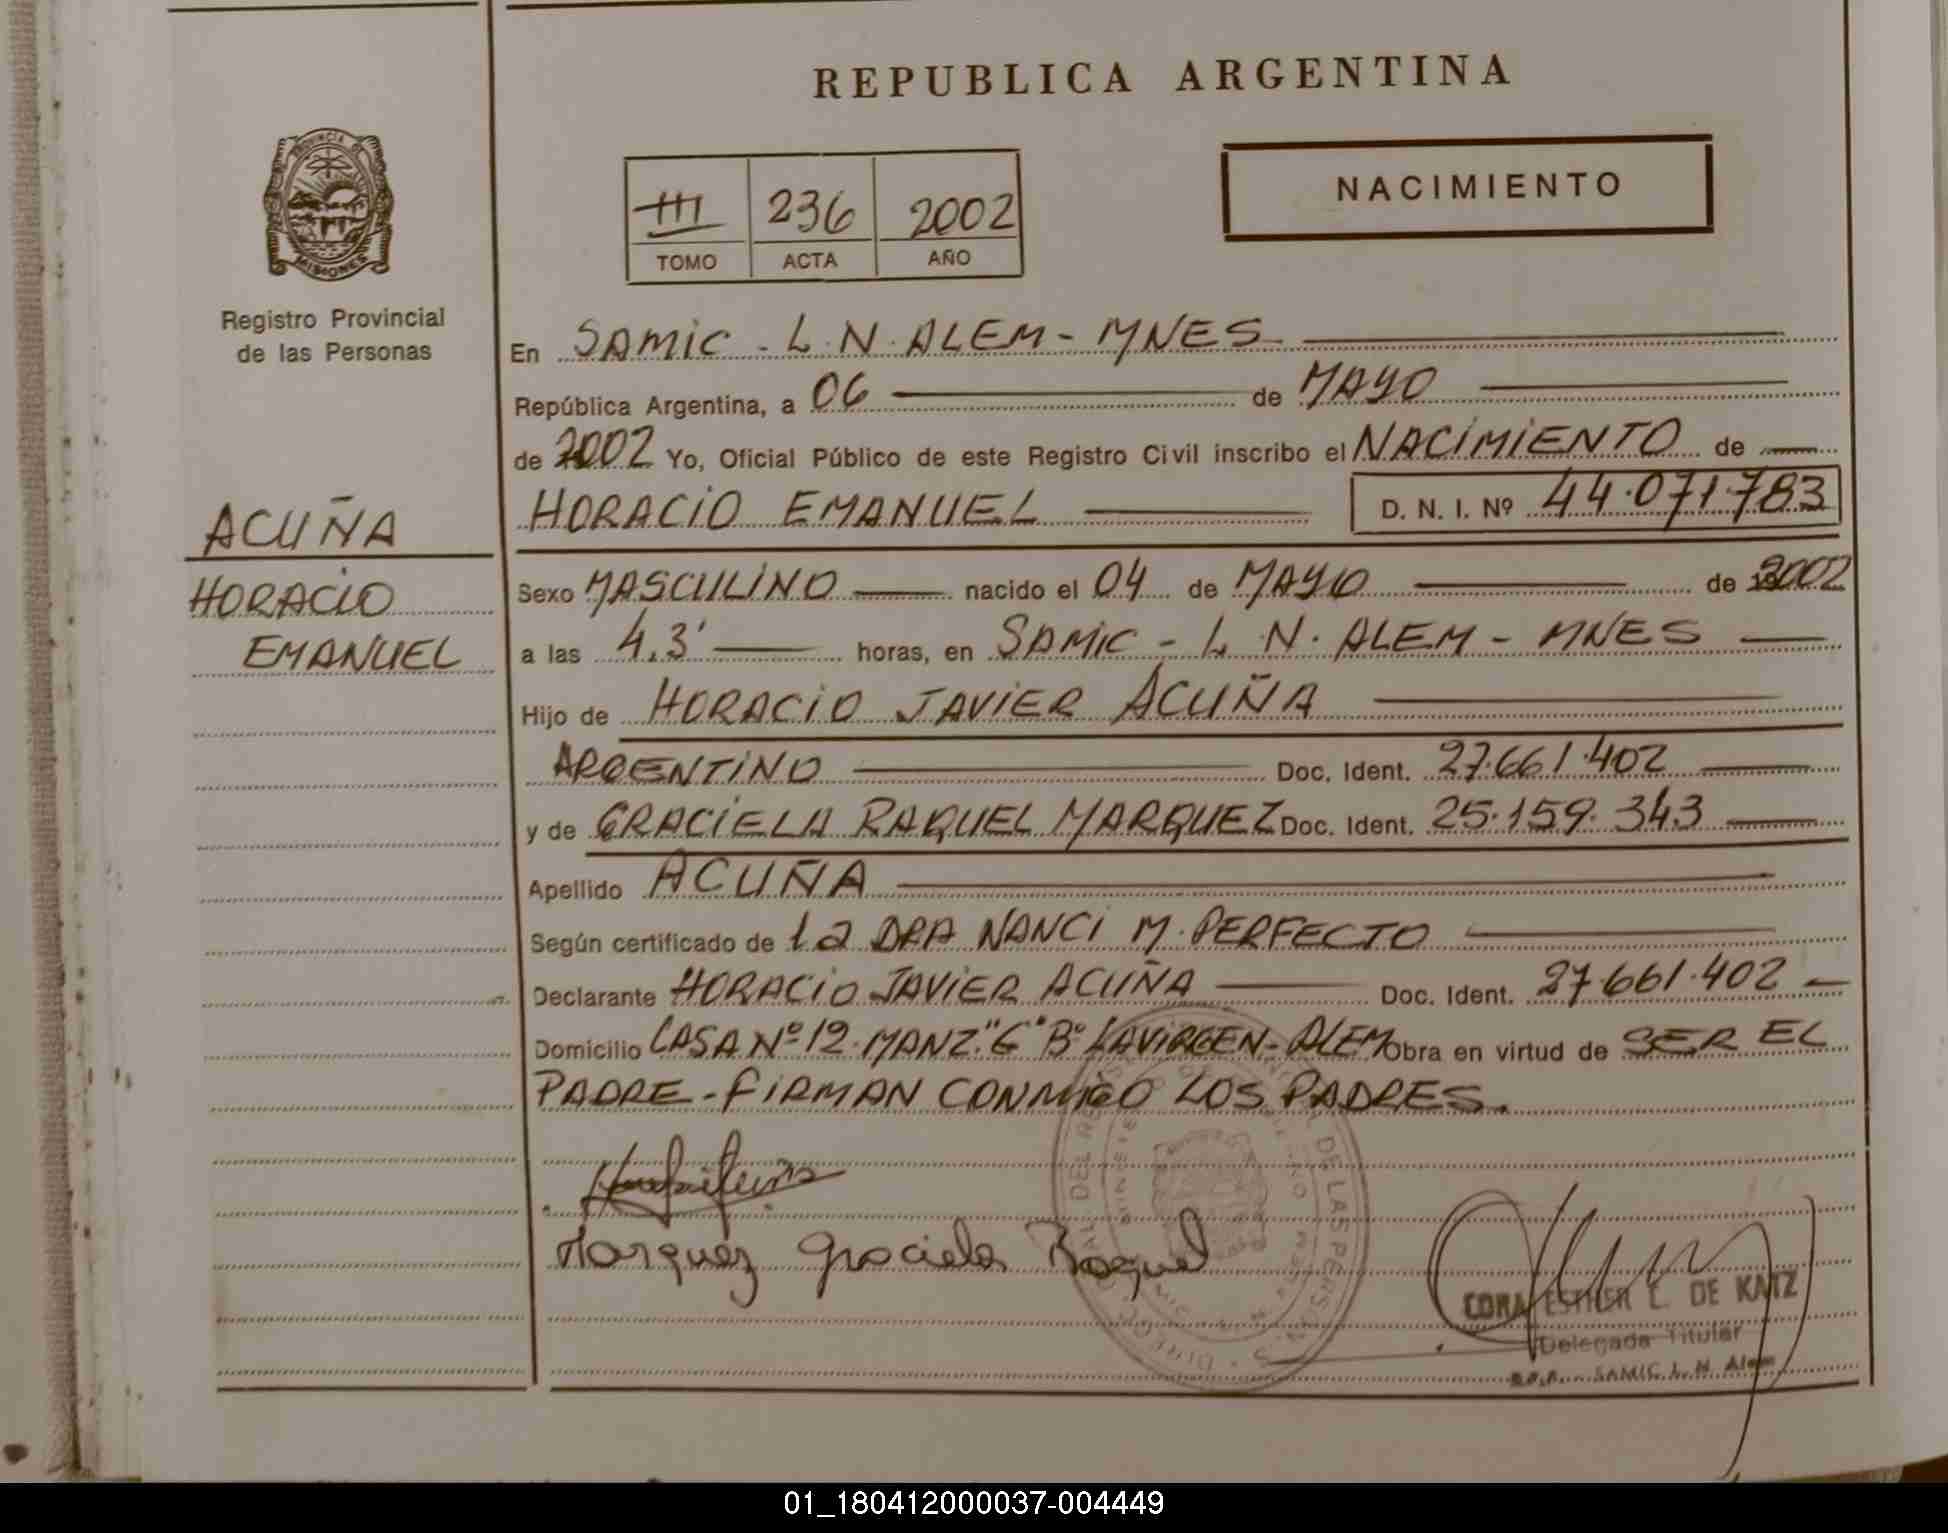 REPUBLICA ARGENTINA
PROVINCIA DE
MISIONES
Registro Provincial
de las Personas
III 236 2002
TOMO ACTA AÑO
NACIMIENTO
ACUÑA
HORACIO
EMANUEL
En SAMIC - L.N. ALEM - MNES
República Argentina, a 06 de MAYO
de 2002 Yo, Oficial Público de este Registro Civil inscribo el NACIMIENTO de
HORACIO EMANUEL D. N. I. Nº 44.071.783
Sexo MASCULINO nacido el 04 de MAYO de 2002
a las 4,3' horas, en SAMIC - L.N. ALEM - MNES
Hijo de HORACIO JAVIER ACUÑA
ARGENTINO Doc. Ident. 27.661.402
y de GRACIELA RAQUEL MARQUEZ Doc. Ident. 25.159.343
Apellido ACUÑA
Según certificado de la DRA NANCI M. PERFECTO
Declarante HORACIO JAVIER ACUÑA Doc. Ident. 27.661.402
Domicilio CASA Nº 12. MANZ. "G" Bº LAVIRGEN - ALEM Obra en virtud de SER EL
PADRE - FIRMAN CONMIGO LOS PADRES.
Marquez Graciela Raquel
DE LAS PERSONAS
CORA ESTHER L. DE KATZ
Delegada Titular
SAMIC. L. N. Alem
01_180412000037-004449